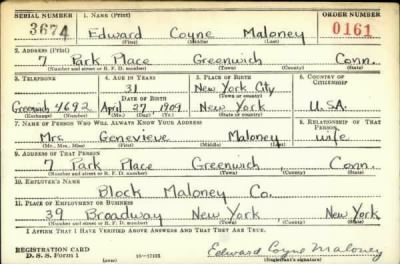 SERIAL NUMBER 1. NAME (Print) ORDER NUMBER
3674 Edward Coyne Maloney 0161
(First) (Middle) (Last)
2. ADDRESS (Print)
7 Park Place Greenwich Conn.
(Number and street or R. F. D. number) (Town) (County) (State)
3. TELEPHONE 4. AGE IN YEARS 5. PLACE OF BIRTH 6. COUNTRY OF CITIZENSHIP
31 New York City
DATE OF BIRTH (Town or county)
Greenwich 4692 April 27, 1909 New York U.S.A.
(Exchange) (Number) (Mo.) (Day) (Yr.) (State or country)
7. NAME OF PERSON WHO WILL ALWAYS KNOW YOUR ADDRESS 8. RELATIONSHIP OF THAT PERSON
Mrs. Genevieve Maloney wife
(Mr., Mrs., Miss) (First) (Middle) (Last)
9. ADDRESS OF THAT PERSON
7 Park Place Greenwich, Conn.
(Number and street or R. F. D. number) (Town) (County) (State)
10. EMPLOYER'S NAME
Block Maloney Co.
11. PLACE OF EMPLOYMENT OR BUSINESS
39 Broadway New York New York
(Number and street or R. F. D. number) (Town) (County) (State)
I AFFIRM THAT I HAVE VERIFIED ABOVE ANSWERS AND THAT THEY ARE TRUE.
REGISTRATION CARD
D. S. S. Form 1 Edward Coyne Maloney
(Registrant's signature)